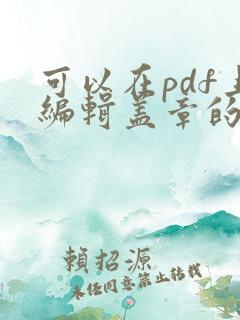 可以在pdf
编辑盖章的
賴招源
未经同意禁止转载